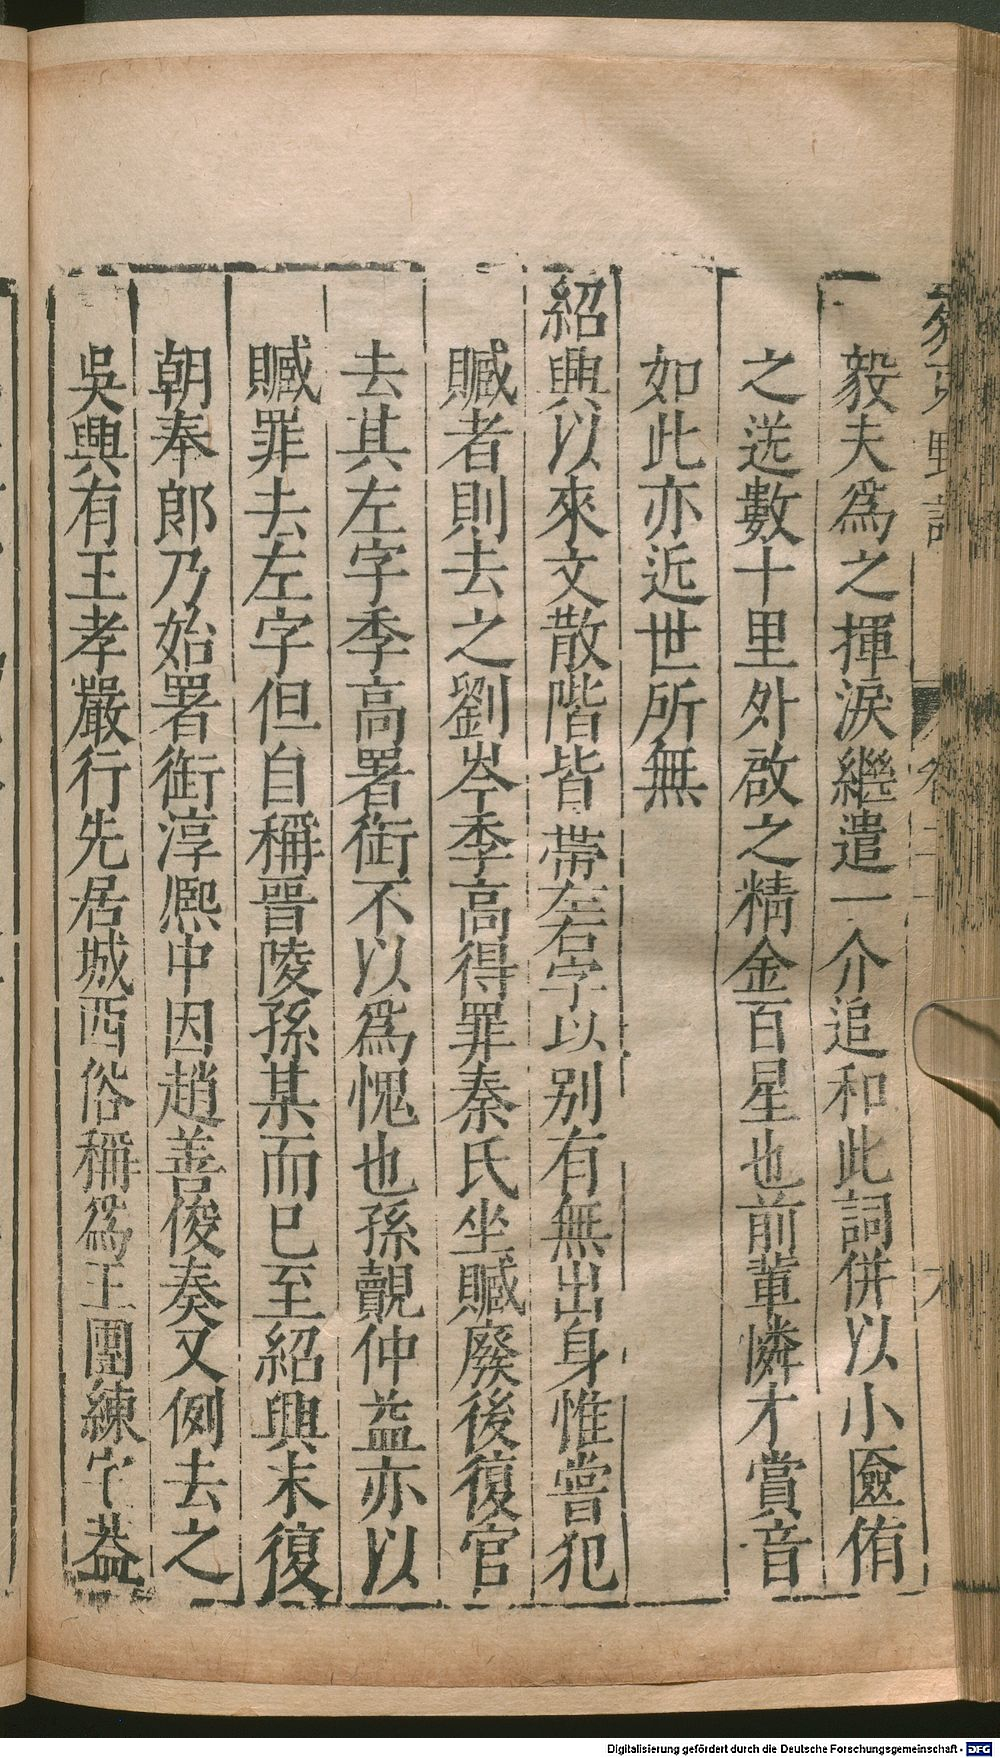 毅夫爲之揮淚繼遣一介追和此詞併以小匳侑
之送數十里外啟之精金百星也前輩憐才賞音
如此亦近世所無
紹興以來文散階皆帶左右字以别有無出身惟嘗犯
贓者則去之劉岑季高得罪秦氏坐贓廢後復官
去其左字季高署銜不以爲愧也孫覿仲益亦以
贓罪去左字但自稱晉陵孫某而已至紹興末復
朝奉郎乃始署銜淳熈中因趙善俊奏又例去之
吳興有王孝嚴行先居城西俗稱爲王團練宅葢
Digitalisierung gefördert durch die Deutsche Forschungsgemeinschaft - DFG